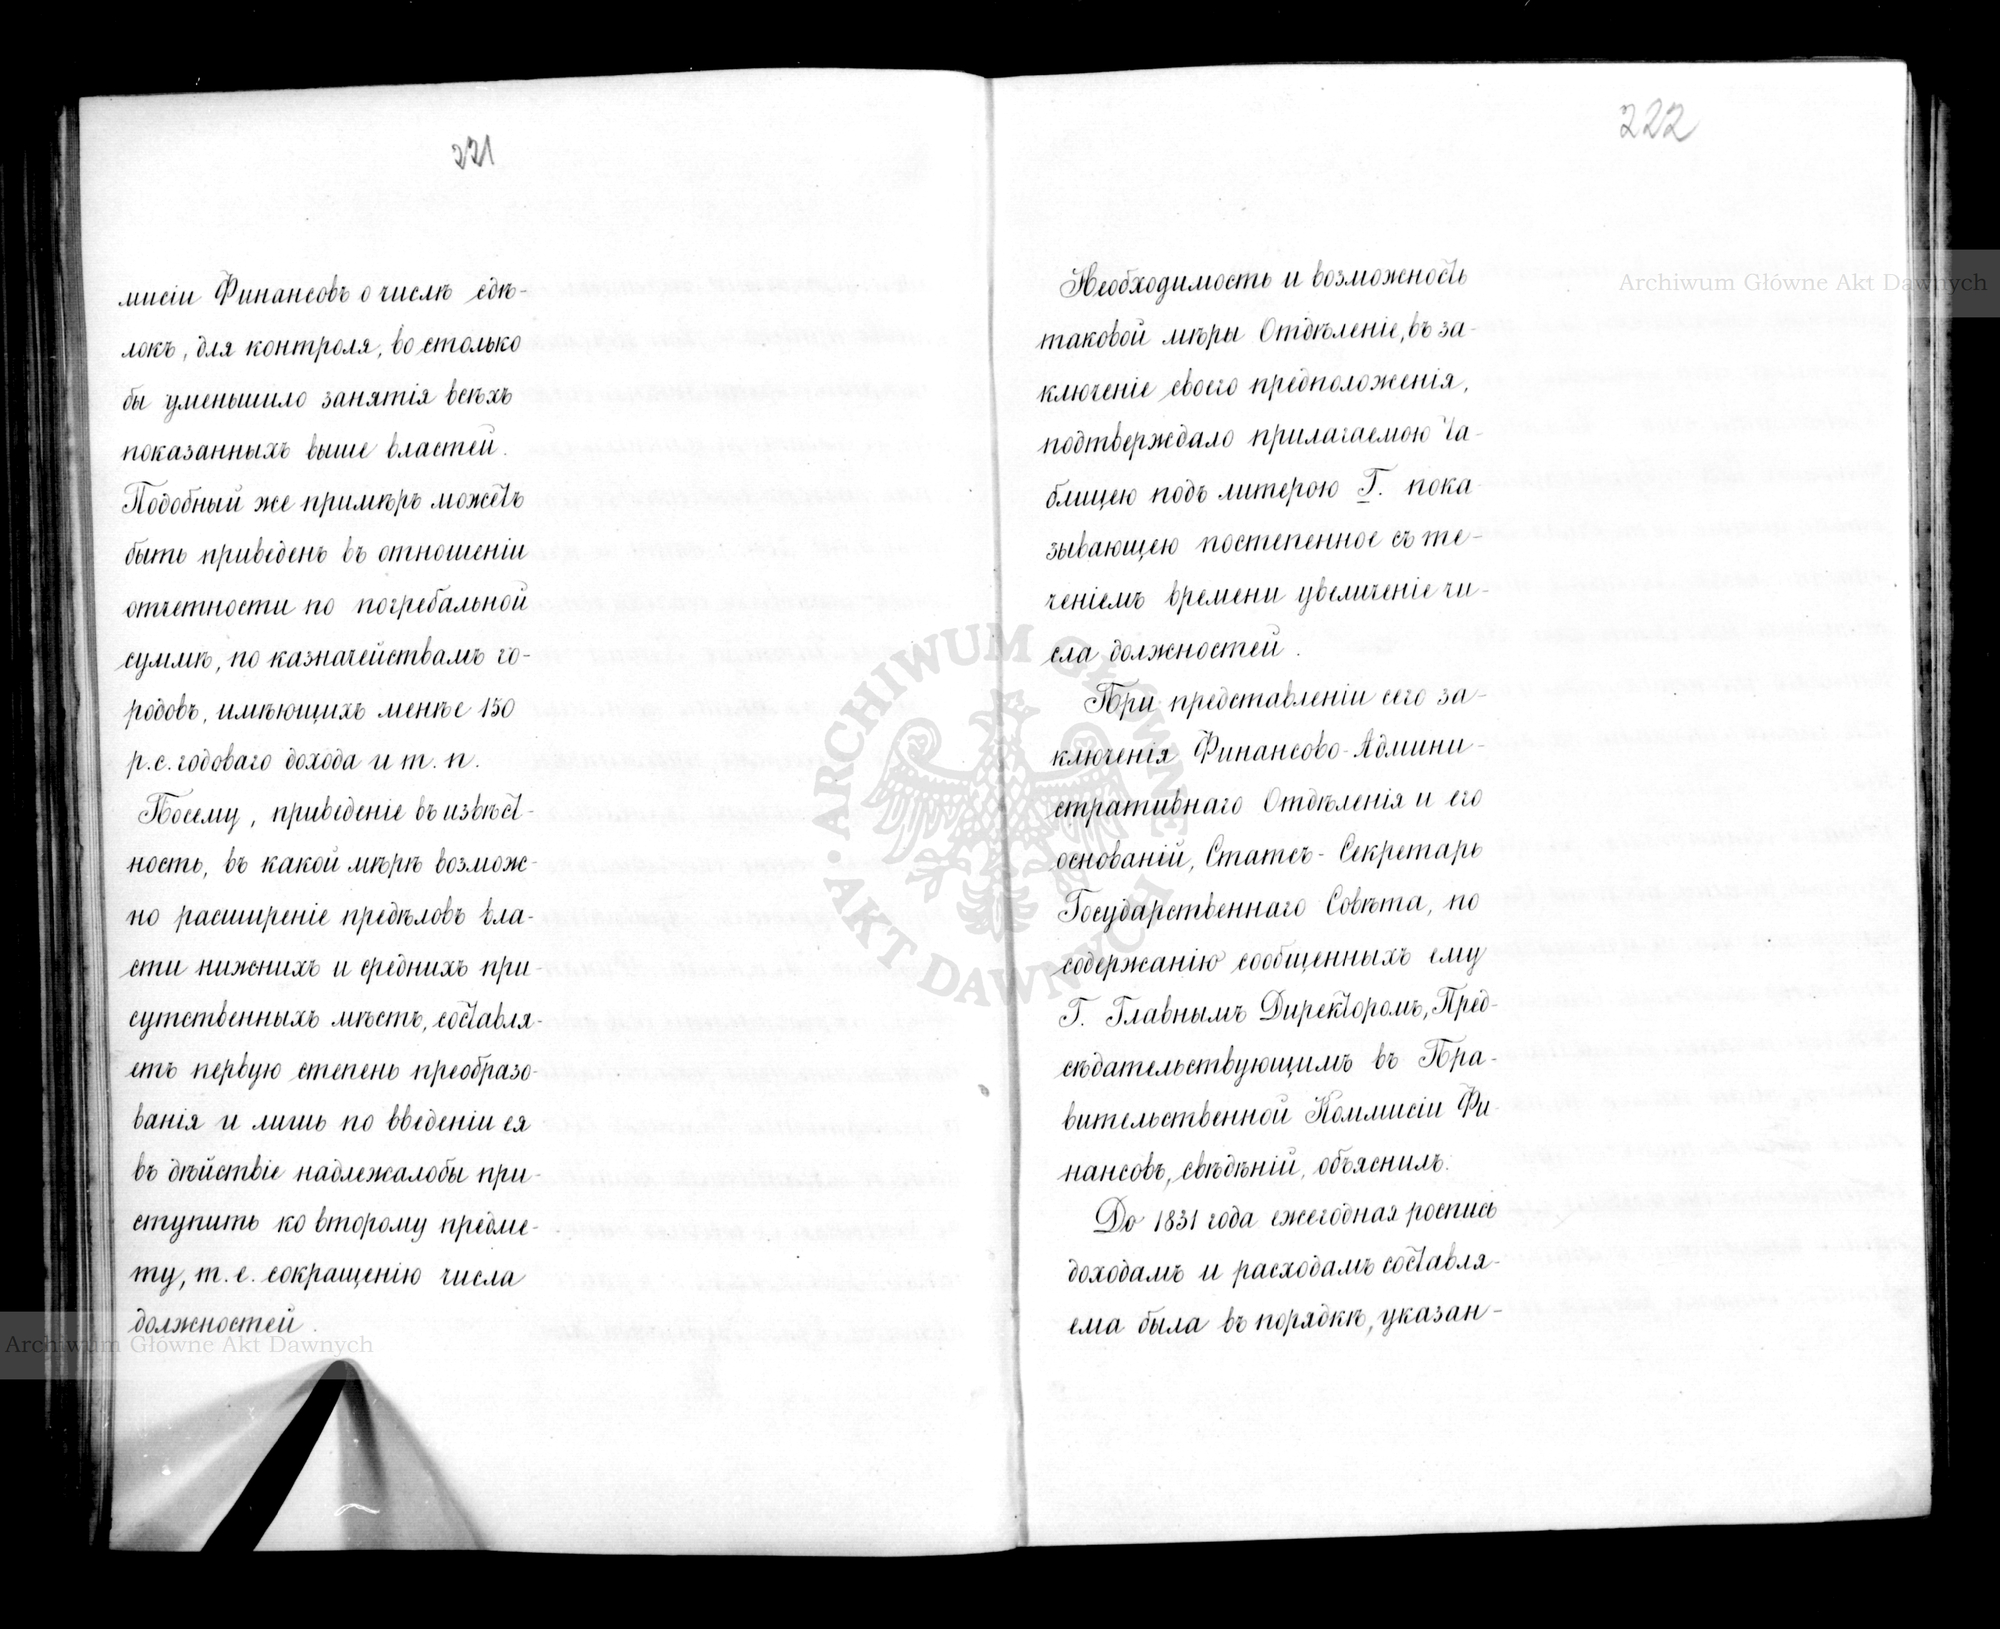 221
мисіи Финансовъ о числѣ сдѣ-
локъ, для контроля, во столько
бы уменьшило занятія всѣхъ
показанныхъ выше властей.
Подобный же примѣръ можетъ
быть приведенъ въ отношеніи
отчетности по погребальной
суммѣ, по казначействамъ го-
родовъ, имѣющихъ менѣе 150
р. с. годоваго дохода и т. п.
Посему, приведеніе въ извѣст-
ность, въ какой мѣрѣ возмож-
но расширеніе предѣловъ вла-
сти нижнихъ и среднихъ при-
сутственныхъ мѣстъ, составля-
етъ первую степень преобразо-
ванія и лишь по введеніи ея
въ дѣйствіе надлежалобы при-
ступить ко второму предме-
ту, т. е. сокращенію числа
должностей.
222
Необходимость и возможность
таковой мѣры Отдѣленіе, въ за-
ключеніе своего предположенія,
подтверждало прилагаемою та-
блицею подъ литерою Г. пока-
зывающею постепенное съ те-
ченіемъ времени увеличеніе чи-
сла должностей.
При представленіи сего за-
ключенія Финансово-Админи-
стративнаго Отдѣленія и его
основаній, Статсъ-Секретарь
Государственнаго Совѣта, по
содержанію сообщенныхъ ему
Г. Главнымъ Директоромъ, Пред-
сѣдательствующимъ въ Пра-
вительственной Коммисіи Фи-
нансовъ, свѣдѣній, объяснилъ:
До 1831 года ежегодная роспись
доходамъ и расходамъ составля-
ема была въ порядкѣ, указан-
Archiwum Główne Akt Dawnych
ARCHIWUM GŁÓWNE
AKT DAWNYCH
Archiwum Główne Akt Dawnych